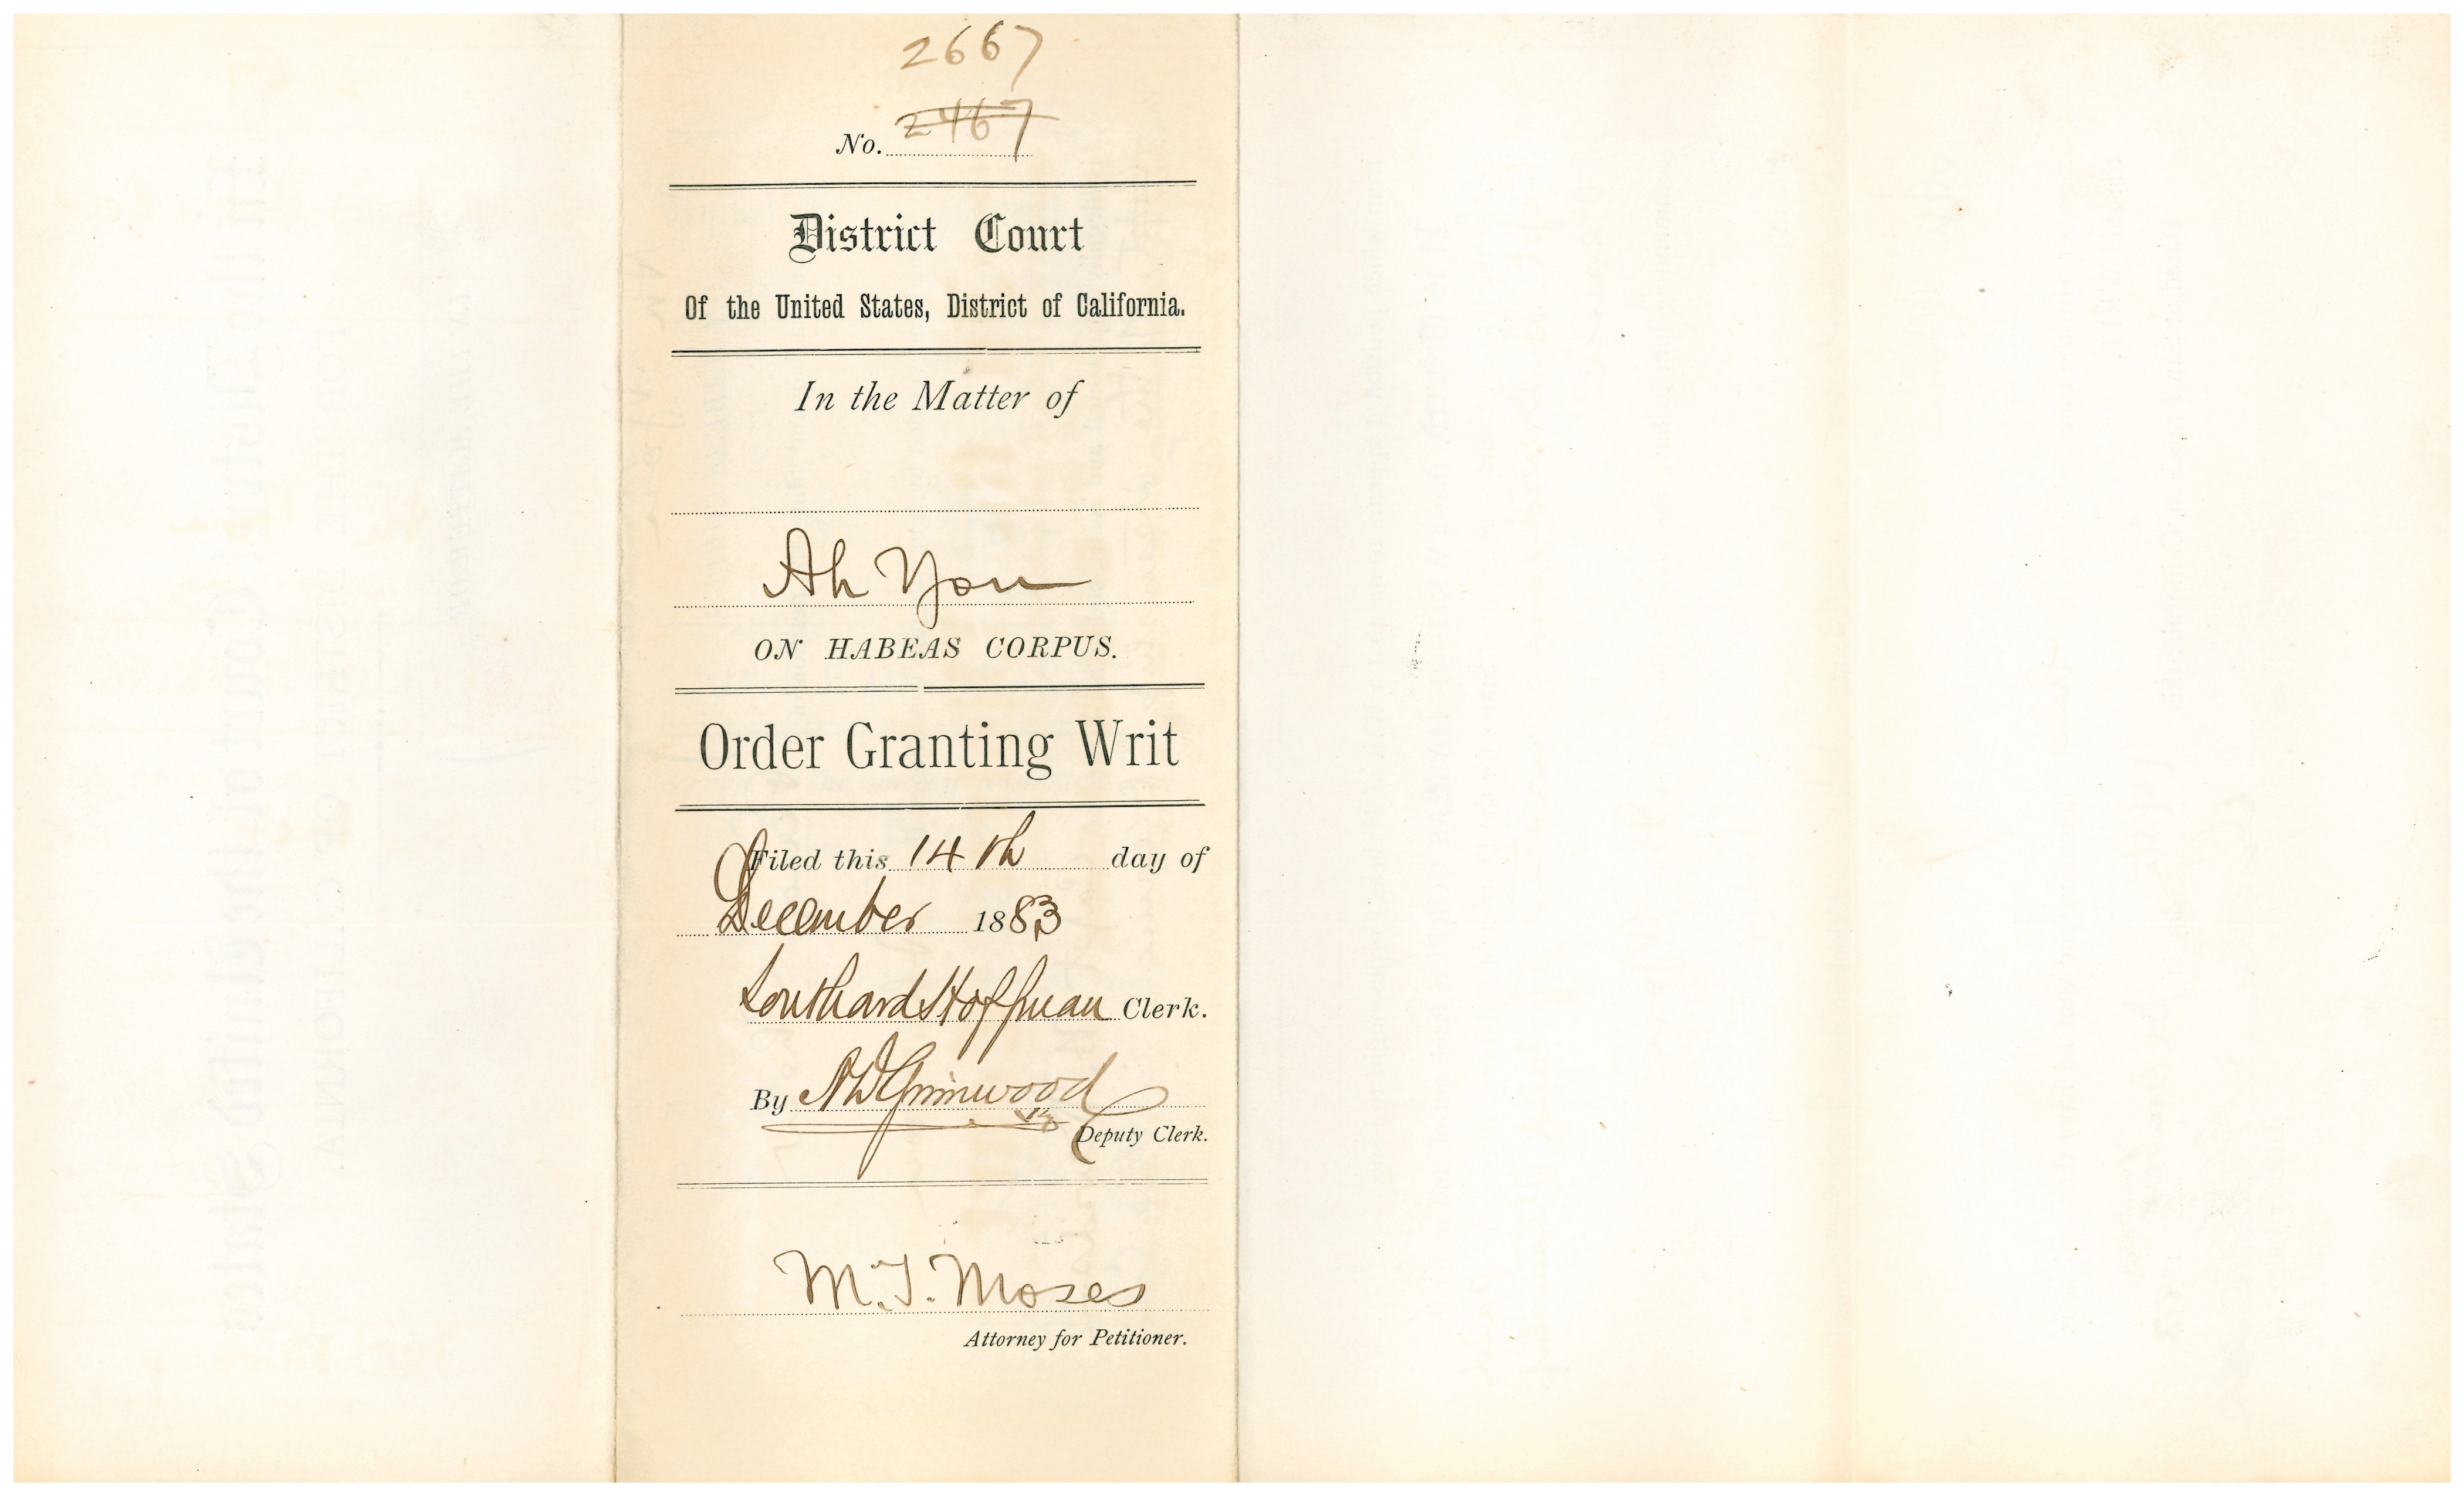 2667
No. 2467
District Court
Of the United States, District of California.
In the Matter of
Ah You
ON HABEAS CORPUS.
Order Granting Writ
Filed this 14th day of
December 1883
Southard Hoffman Clerk.
By Grimwood
Deputy Clerk.
M. T. Moses
Attorney for Petitioner.